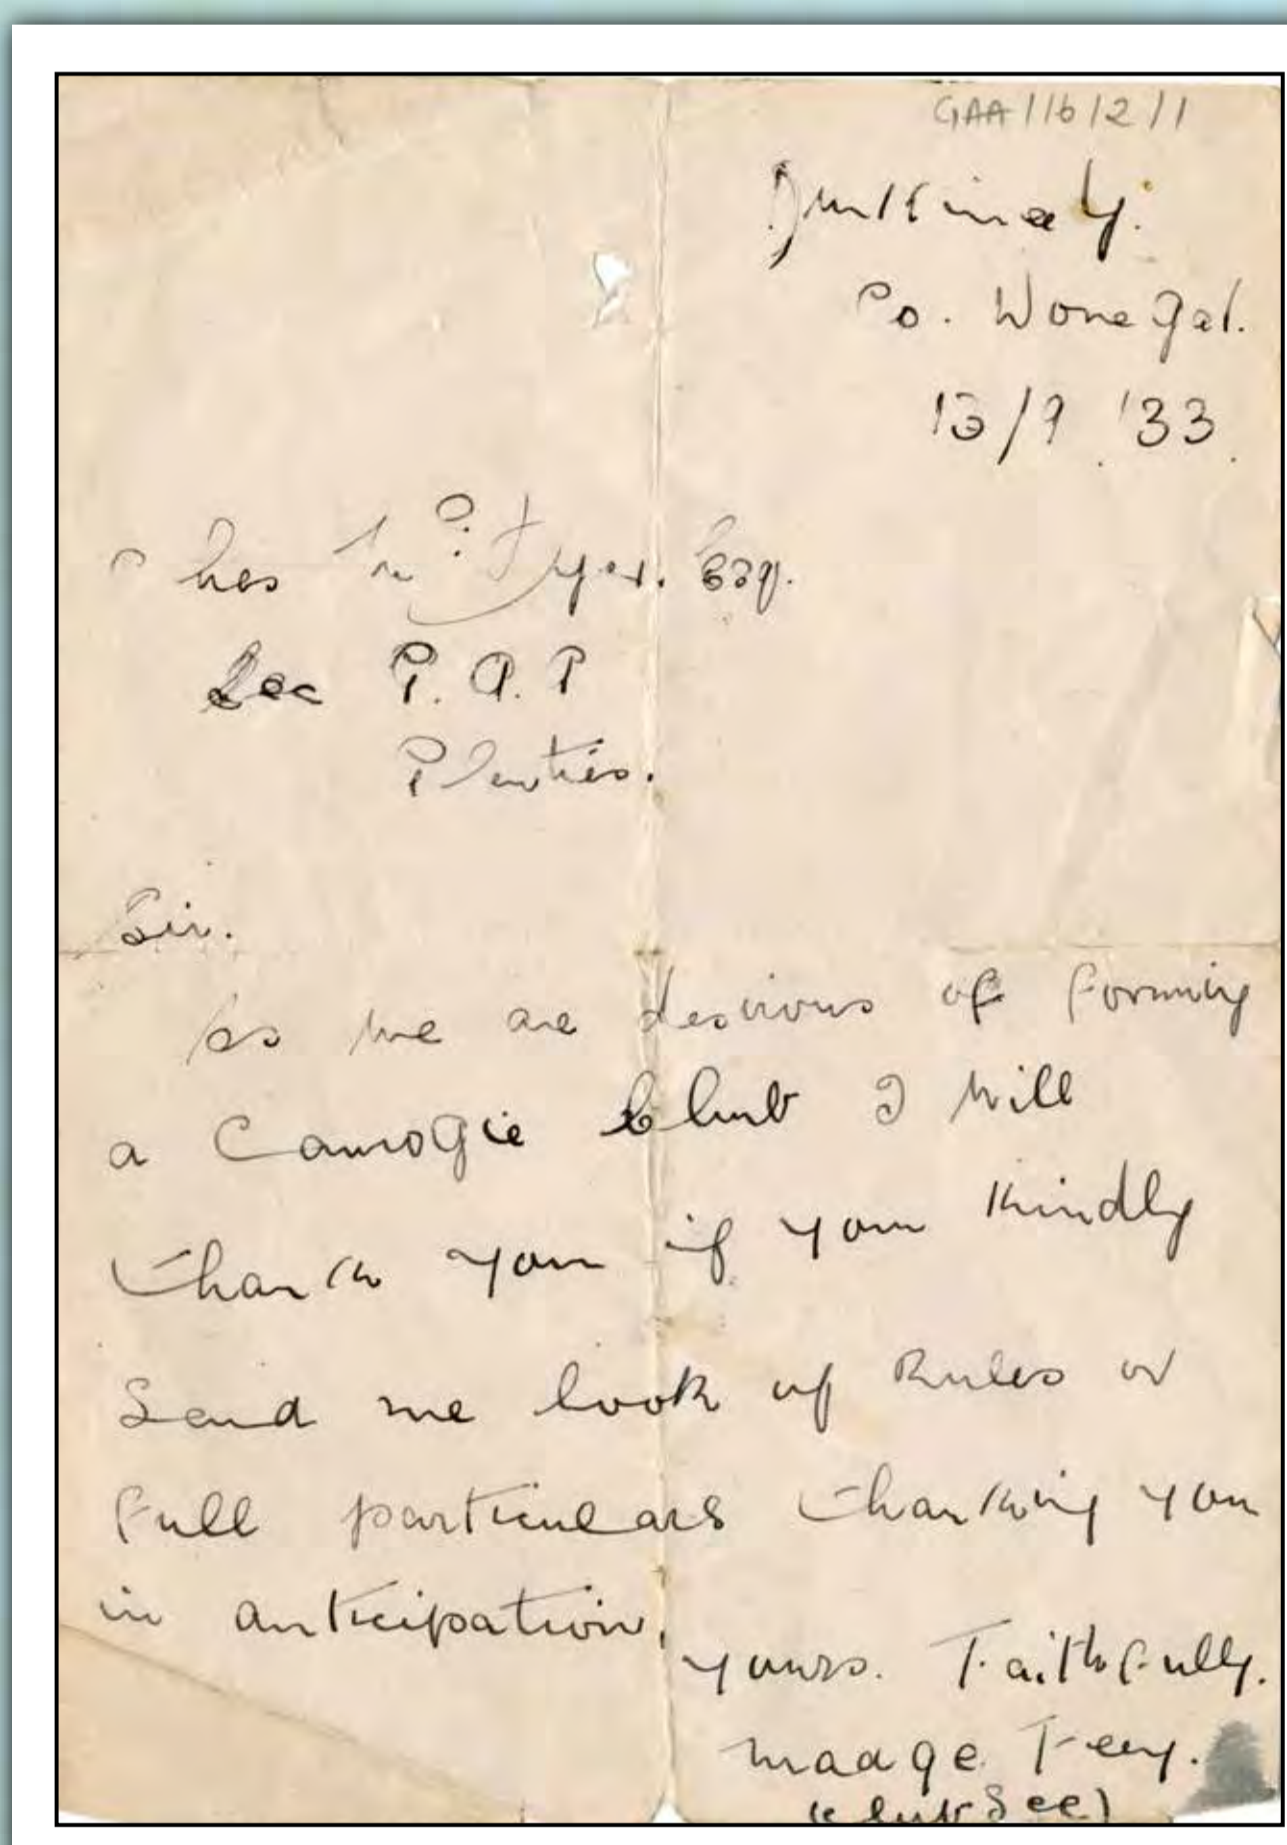 GAA/16/2/1
Dunkinealy.
Co. Donegal.
13/9 '33.
Chas McDyer. Esq.
Sec G.A.A
Glenties.
Sir.
As we are desirous of forming
a Camogie Club I will
thank you if you kindly
Send me book of Rules or
full particulars thanking you
in anticipation.
yours. Faithfully.
Madge Feey.
(Club Sec)